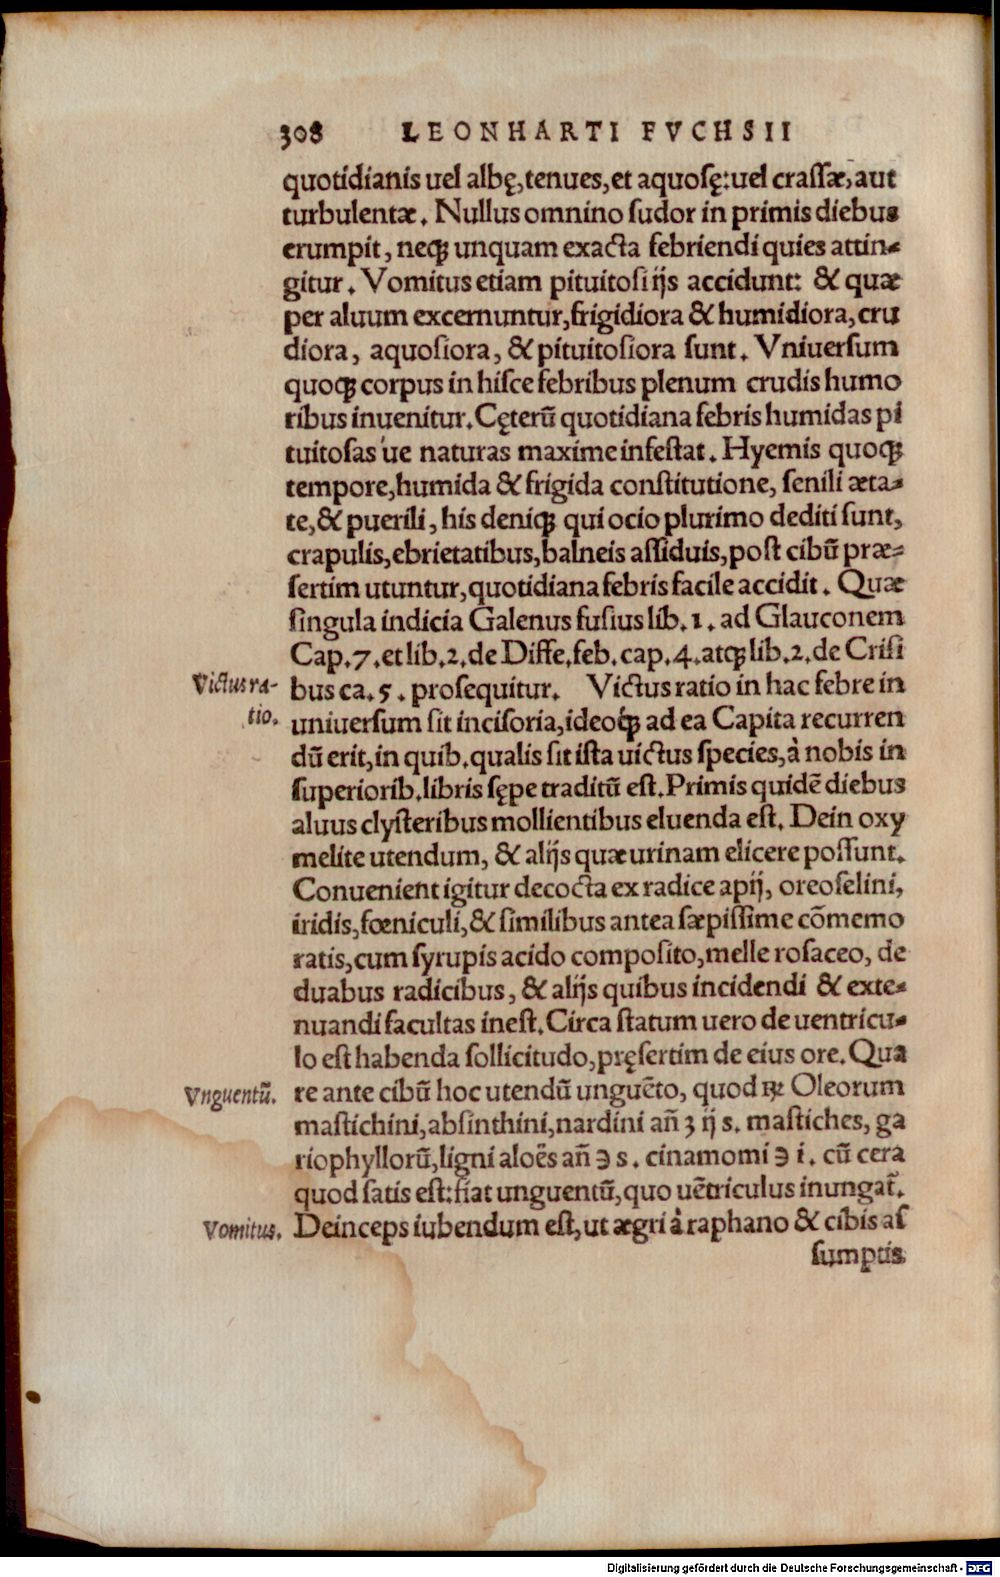 308 LEONHARTI FVCHSII
quotidianis uel albę, tenues, et aquosę: uel crassæ, aut
turbulentæ. Nullus omnino sudor in primis diebus
erumpit, neq; unquam exacta febriendi quies attin-
gitur. Vomitus etiam pituitosi ijs accidunt: & quæ
per aluum excernuntur, frigidiora & humidiora, cru
diora, aquosiora, & pituitosiora sunt. Vniuersum
quoq; corpus in hisce febribus plenum crudis humo
ribus inuenitur. Cęterũ quotidiana febris humidas pi
tuitosas úe naturas maxime infestat. Hyemis quoq;
tempore, humida & frigida constitutione, senili æta-
te, & puerili, his deniq; qui ocio plurimo dediti sunt,
crapulis, ebrietatibus, balneis assiduis, post cibũ præ-
sertim utuntur, quotidiana febris facile accidit. Quæ
singula indicia Galenus fusius lib. 1. ad Glauconem
Cap. 7. et lib. 2. de Diffe. feb. cap. 4. atq; lib. 2. de Crisi
Victus ra- bus ca. 5. prosequitur. Victus ratio in hac febre in
tio. uniuersum sit incisoria, ideoq́; ad ea Capita recurren
dũ erit, in quib. qualis sit ista uictus species, à nobis in
superiorib. libris sępe traditũ est. Primis quidẽ diebus
aluus clysteribus mollientibus eluenda est. Dein oxy
melite utendum, & alijs quæ urinam elicere possunt.
Conuenient igitur decocta ex radice apij, oreoselini,
iridis, fœniculi, & similibus antea sæpissime cõmemo
ratis, cum syrupis acido composito, melle rosaceo, de
duabus radicibus, & alijs quibus incidendi & exte-
nuandi facultas inest. Circa statum uero de uentricu-
lo est habenda sollicitudo, pręsertim de eius ore. Qua
Vnguentũ. re ante cibũ hoc utendũ unguẽto, quod ℞ Oleorum
mastichini, absinthini, nardini añ ʒ ij s. mastiches, ga
riophyllorũ, ligni aloës añ ℈ s. cinamomi ℈ i. cũ cera
quod satis est: fiat unguentũ, quo uẽtriculus inungat̃.
Vomitus. Deinceps iubendum est, ut ægri à raphano & cibis as
sumptis
Digitalisierung gefördert durch die Deutsche Forschungsgemeinschaft - DFG